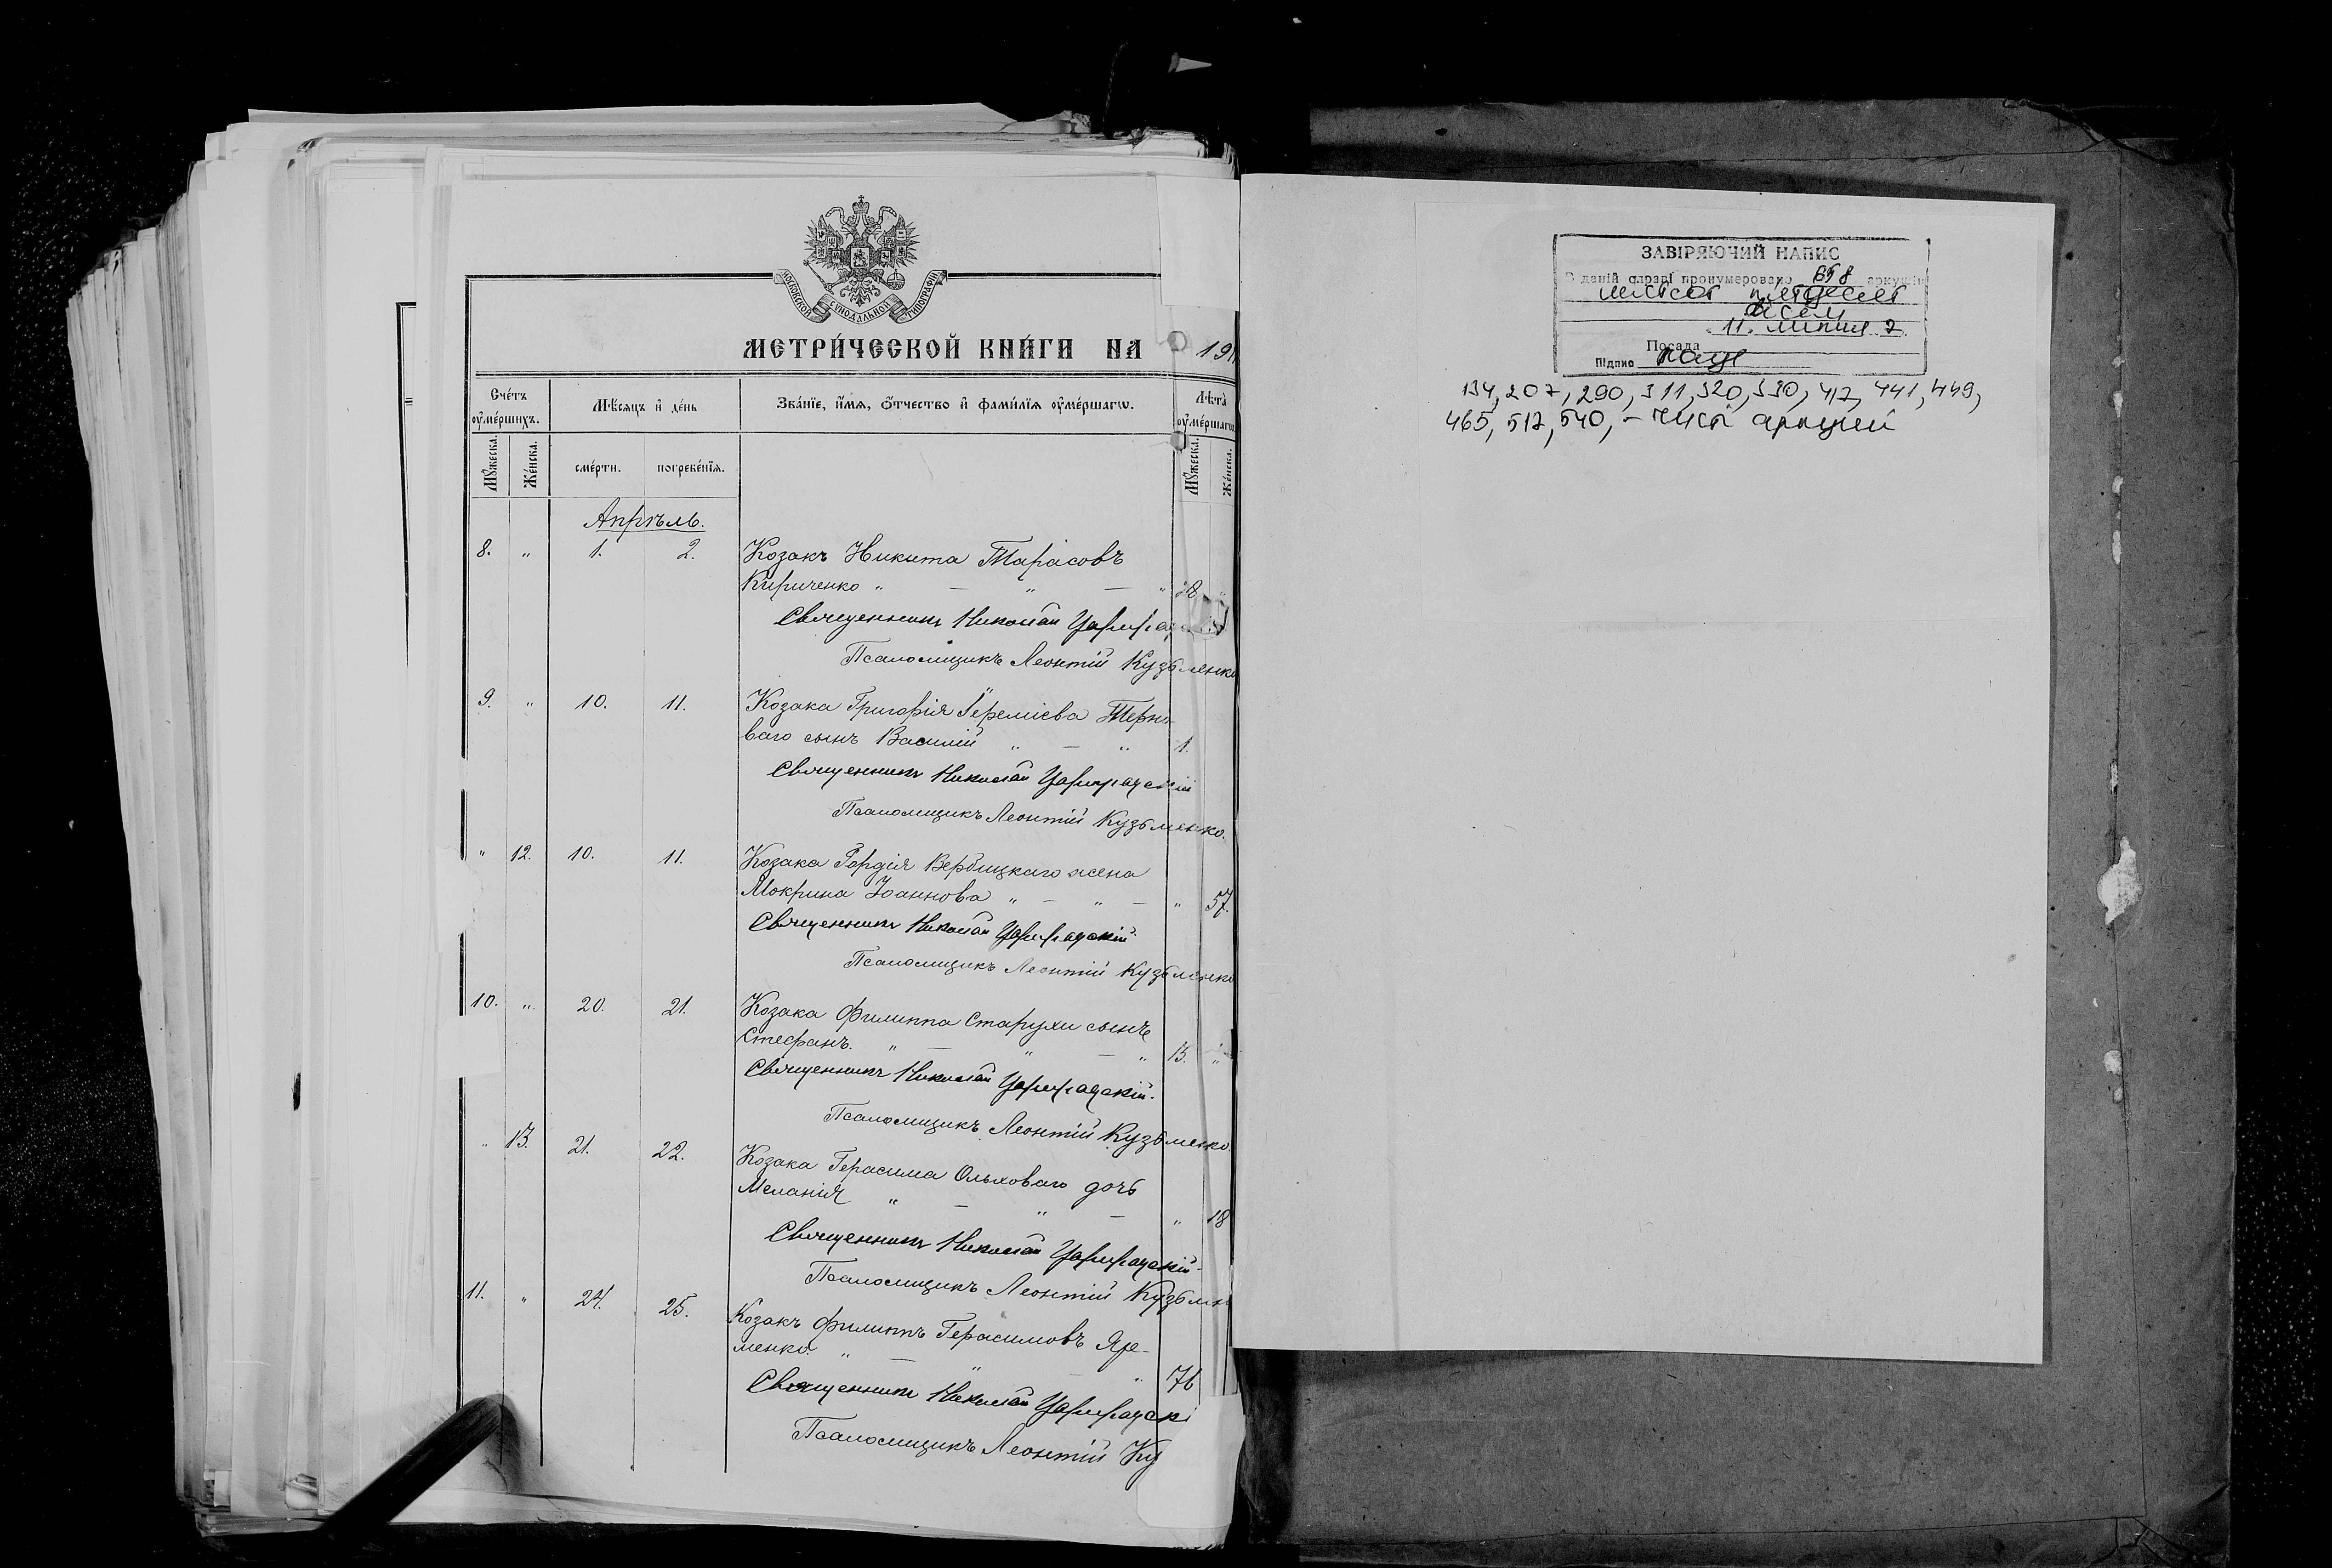 МОСКОВСКОЙ СѴНОДАЛЬНОЙ ТИПОГРАФІИ
МЕТРИ́ЧЕСКОЙ КНИ́ГИ НА 191
Сче́тъ оу҆ме́ршихъ.
Мѣ́сяцъ и҆ де́нь
Зва́нїе, и҆́мя, ѻ҆́тчество и҆ фами́лїя оу҆ме́ршагѡ.
Лѣ́та оу҆ме́ршагѡ
Мꙋ́жеска.
Же́нска.
сме́рти.
погребе́нїя.
Мꙋ́жеска.
Же́нска.
Апрѣль.
8. " 1. 2. Козакъ Никита Тарасовъ
Кириченко " — " — "
Священникъ Николай
Псаломщикъ Леонтій Кузьменко
9. " 10. 11. Козака Григорія Іереміева Терно-
ваго сынъ Василій " — " 1.
Священникъ Николай Цариградскій
Псаломщикъ Леонтій Кузьменко.
" 12. 10. 11. Козака Гордія Вербицкаго жена
Мокрина Іоаннова " — " — " 57.
Священникъ Николай Цариградскій
Псаломщикъ Леонтій Кузьменко
10. " 20. 21. Козака Филиппа Старухи сынъ
Стефанъ. " — " — " 15. "
Священникъ Николай Цариградскій.
Псаломщикъ Леонтій Кузьменко.
" 13. 21. 22. Козака Герасима Ольховаго дочь
Меланія " — " — " 18
Священникъ Николай Цариградскій
Псаломщикъ Леонтій Кузьмен
11. " 24. 25. Козакъ Филиппъ Герасимовъ Яре-
менко. " — " — " 76
Священникъ Николай Цариградскі
Псаломщикъ Леонтій Ку
ЗАВІРЯЮЧИЙ НАПИС
В даній справі пронумеровано 658 аркушів
шістсот п'ятдесят
вісем
11. липня
Посада
Підпис
134, 207, 290, 311, 320, 330, 417, 441, 449,
465, 512, 540, – чисті аркуші